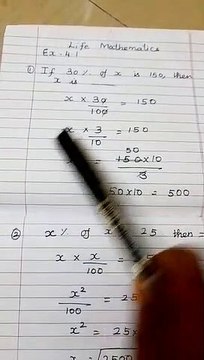 Life Mathematics
Ex 4.1
① If 30% of x is 150, then
x is
x × 30/100 = 150
x × 3/10 = 150
= 150 × 10 / 3
50
50×10 = 500
② x% of x 25 then =
x × x/100 = 25
x²/100 = 25
x² = 25×
x = √2500